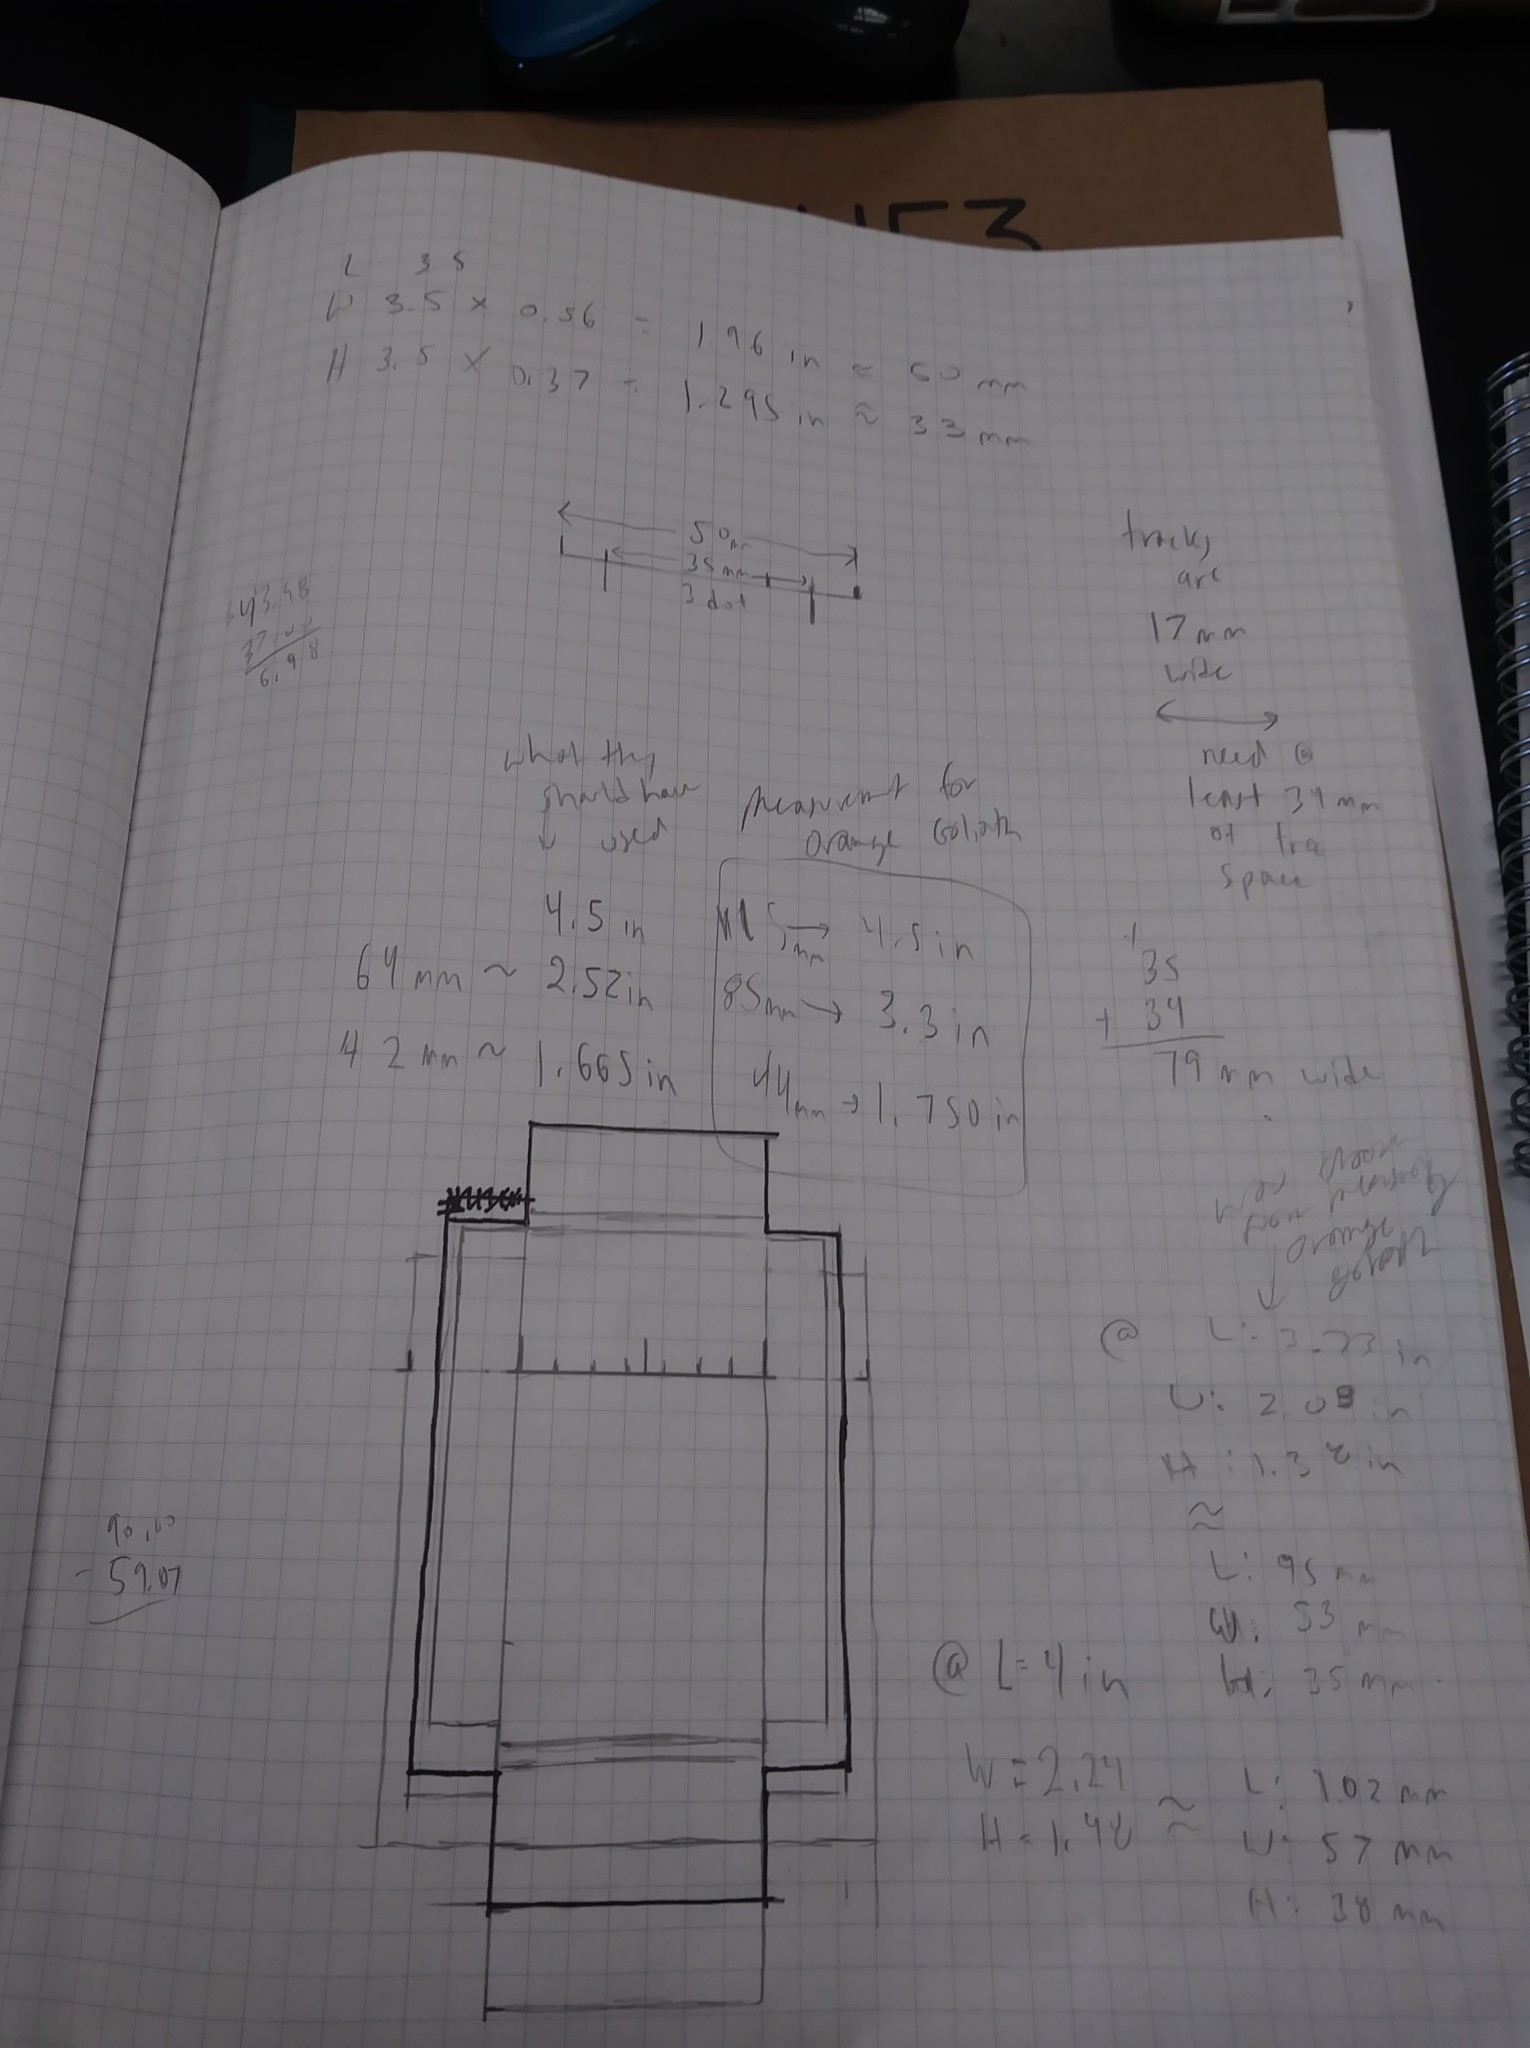 L 3.5
W 3.5 x 0.56 = 1.96 in ≈ 50 mm
H 3.5 x 0.37 = 1.295 in ≈ 33 mm
50mm
35mm
3 dot
43.48
37.00
6.98
tracks
are
17 mm
wide
need @
least 34 mm
of tra
space
what they
should have
used
4.5 in
64 mm ~ 2.52 in
42 mm ~ 1.665 in
measurement for
orange Goliath
115mm → 4.5 in
85mm → 3.3 in
44mm → 1.750 in
35
+ 34
79 mm wide
orange
@ L: 3.73 in
W: 2.08 in
H: 1.38 in
≈
L: 95 mm
W: 53 mm
H: 35 mm
90.00
- 59.07
@ L = 4 in
W = 2.24
H = 1.48
≈
L: 102 mm
W: 57 mm
H: 38 mm